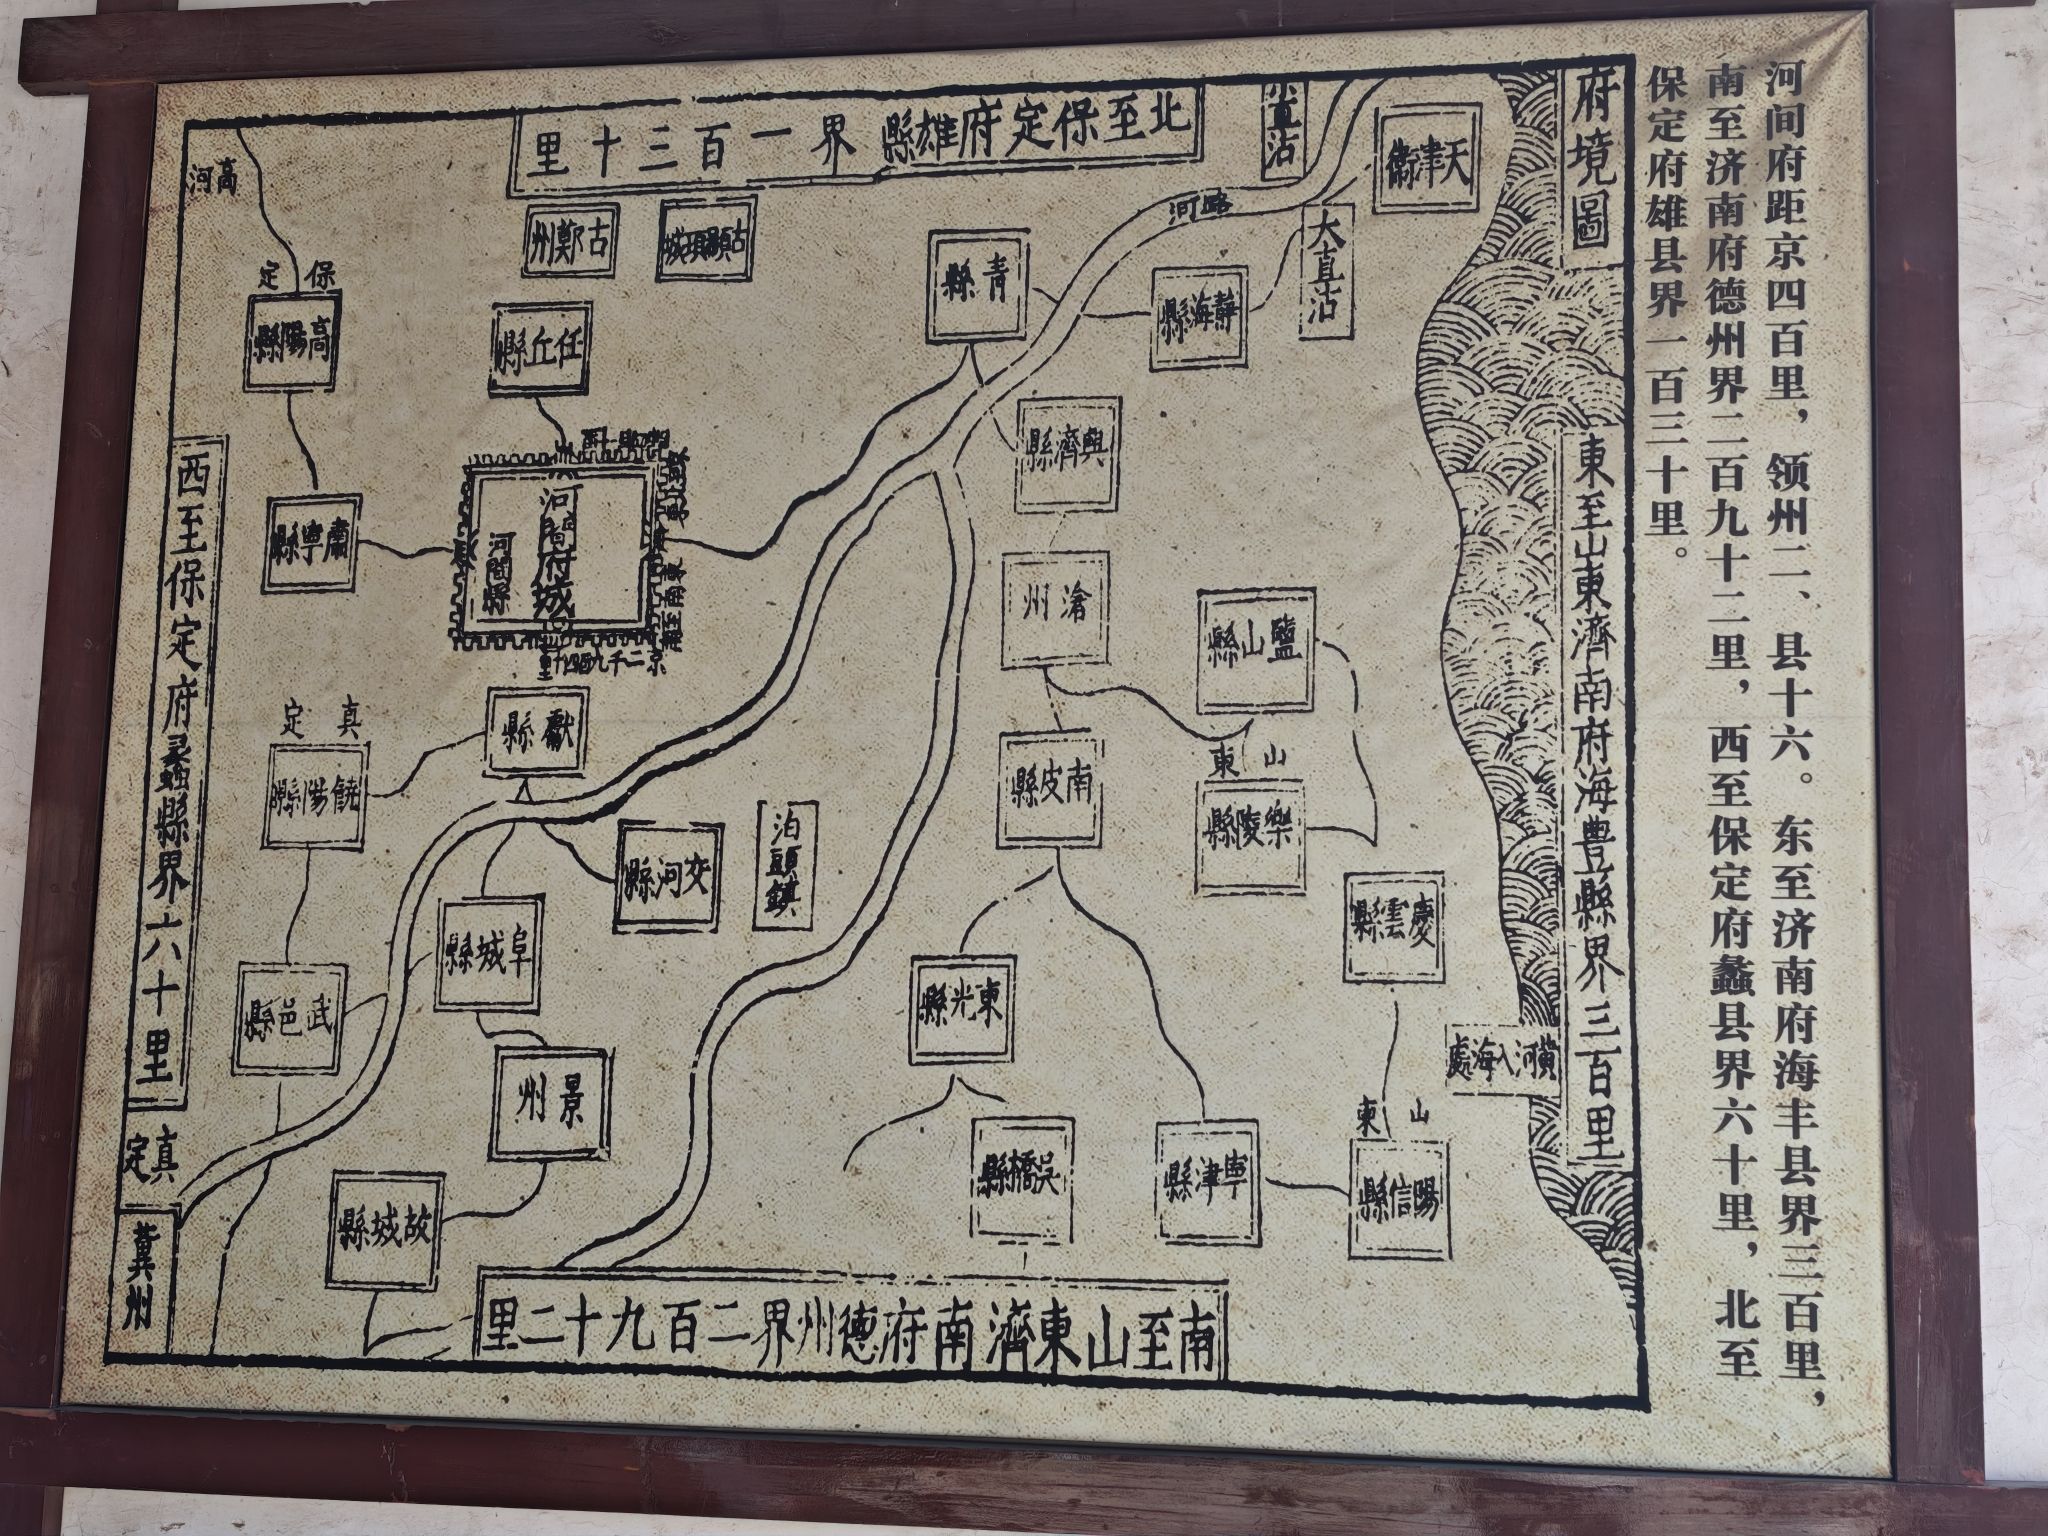 河间府距京四百里，领州二、县十六。东至济南府海丰县界三百里，
南至济南府德州界二百九十二里，西至保定府蠡县界六十里，北至
保定府雄县界一百三十里。
府境圖
東至山東濟南府海豊縣界三百里
北至保定府雄縣界一百三十里
西至保定府蠡縣界六十里
南至山東濟南府德州界二百九十二里
天津衛
直沽
大直沽
河路
靜海縣
青縣
興濟縣
滄州
鹽山縣
南皮縣
山東
樂陵縣
慶雲縣
黃河入海處
山東
陽信縣
寧津縣
東光縣
吳橋縣
古顓頊城
古鄚州
任丘縣
河間府城
河間縣
獻縣
交河縣
泊頭鎮
阜城縣
景州
故城縣
高河
保定
高陽縣
肅寧縣
真定
饒陽縣
武邑縣
真定
冀州